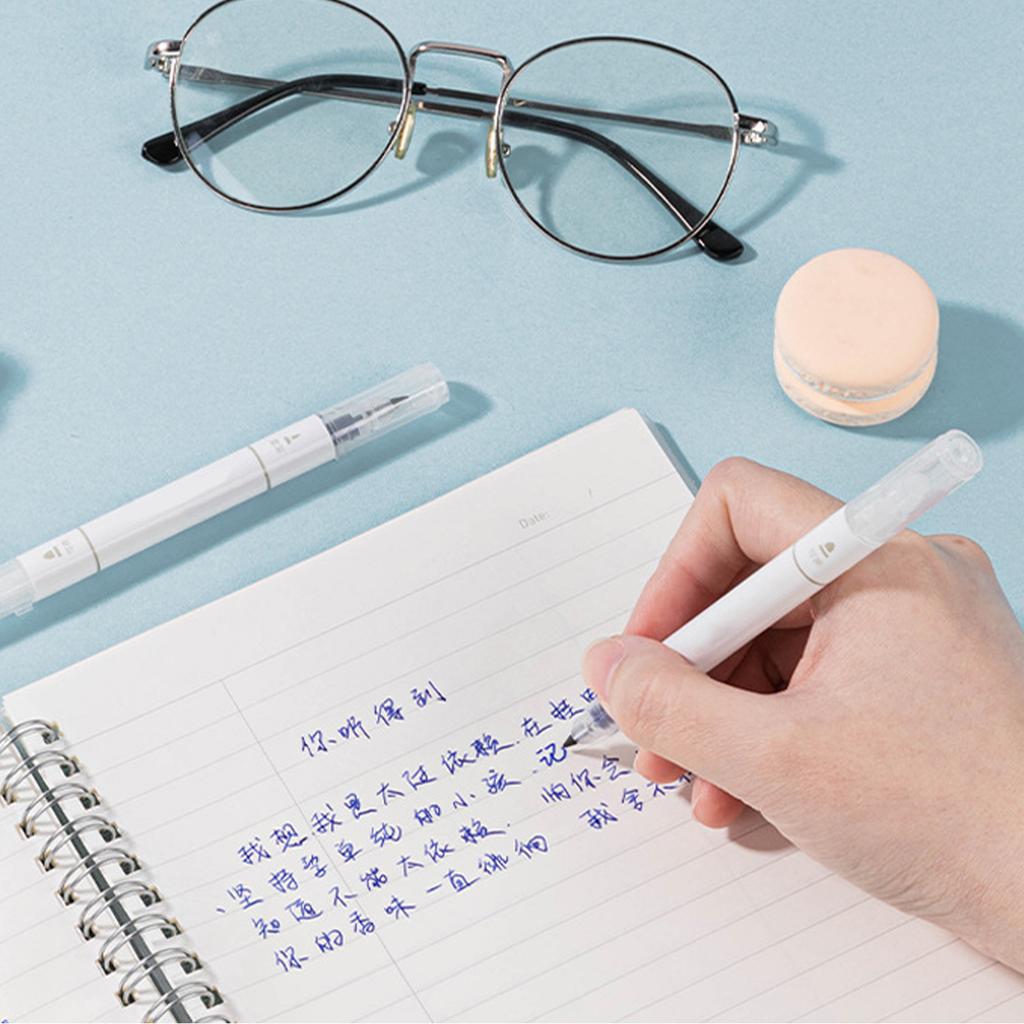 Date:
你听得到
我想我是太过依赖.在挂
、坚持学单纯的小孩.记
知道不能太依赖. 怕你会
你的香味一直徘徊 我舍不